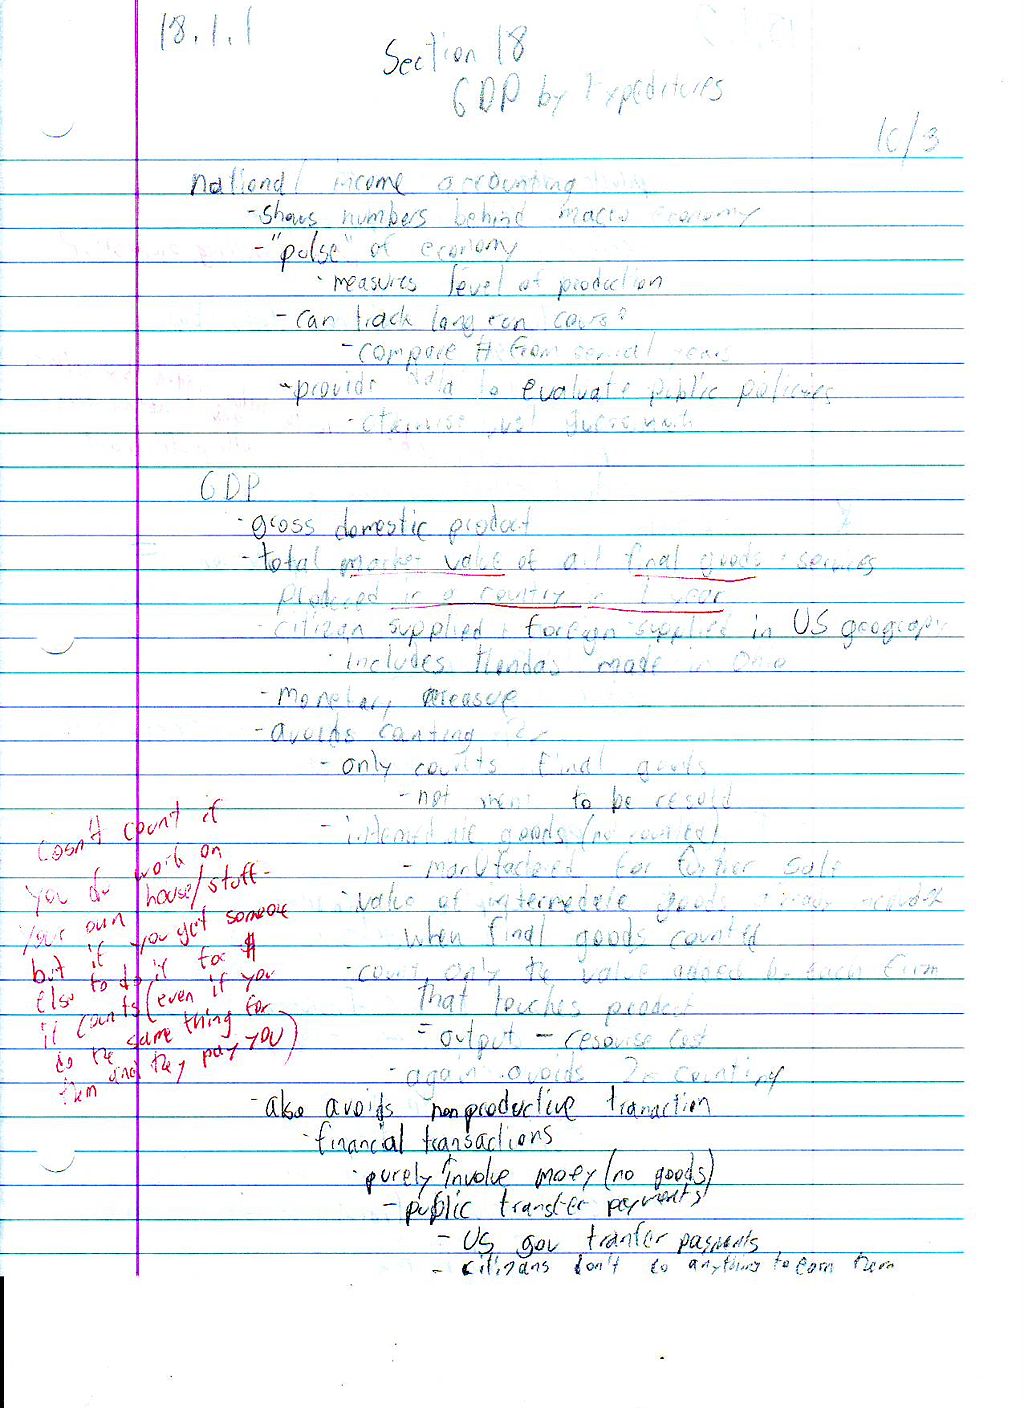 18.1.1
Section 18
GDP by Expeditures
10/3
national income accounting
- shows numbers behind macro economy
- "pulse" of economy
- measures level of production
- can track long run course
- compare # from serial years
- provide data to evaluate public policies
- otherwise just guess work
GDP
- gross domestic product
- total market value of all final goods + services
produced in a country in 1 year
- citizan supplied + foreign supplied in US geographic
- includes Hondas made in Ohio
- monetary measure
- avoids counting 2x
- only counts final goods
- not ment to be resold
- intermediate goods (no counted)
- manufactered for further sale
- value of intermediate goods already
when final goods counted
- count only the value added by each firm
that touches product
= output - resourse cost
- again avoids 2x counting
- also avoids nonproductive tranaction
- financial transactions
- purely involve moey (no goods)
- public transfer payments
- US gov tranfer payments
- citizans don't do anything to earn them
cosn't count if
you do work on
your own house/stuff -
but if you get someone
else to do it for $
it counts (even if you
do the same thing for
them and they pay you)